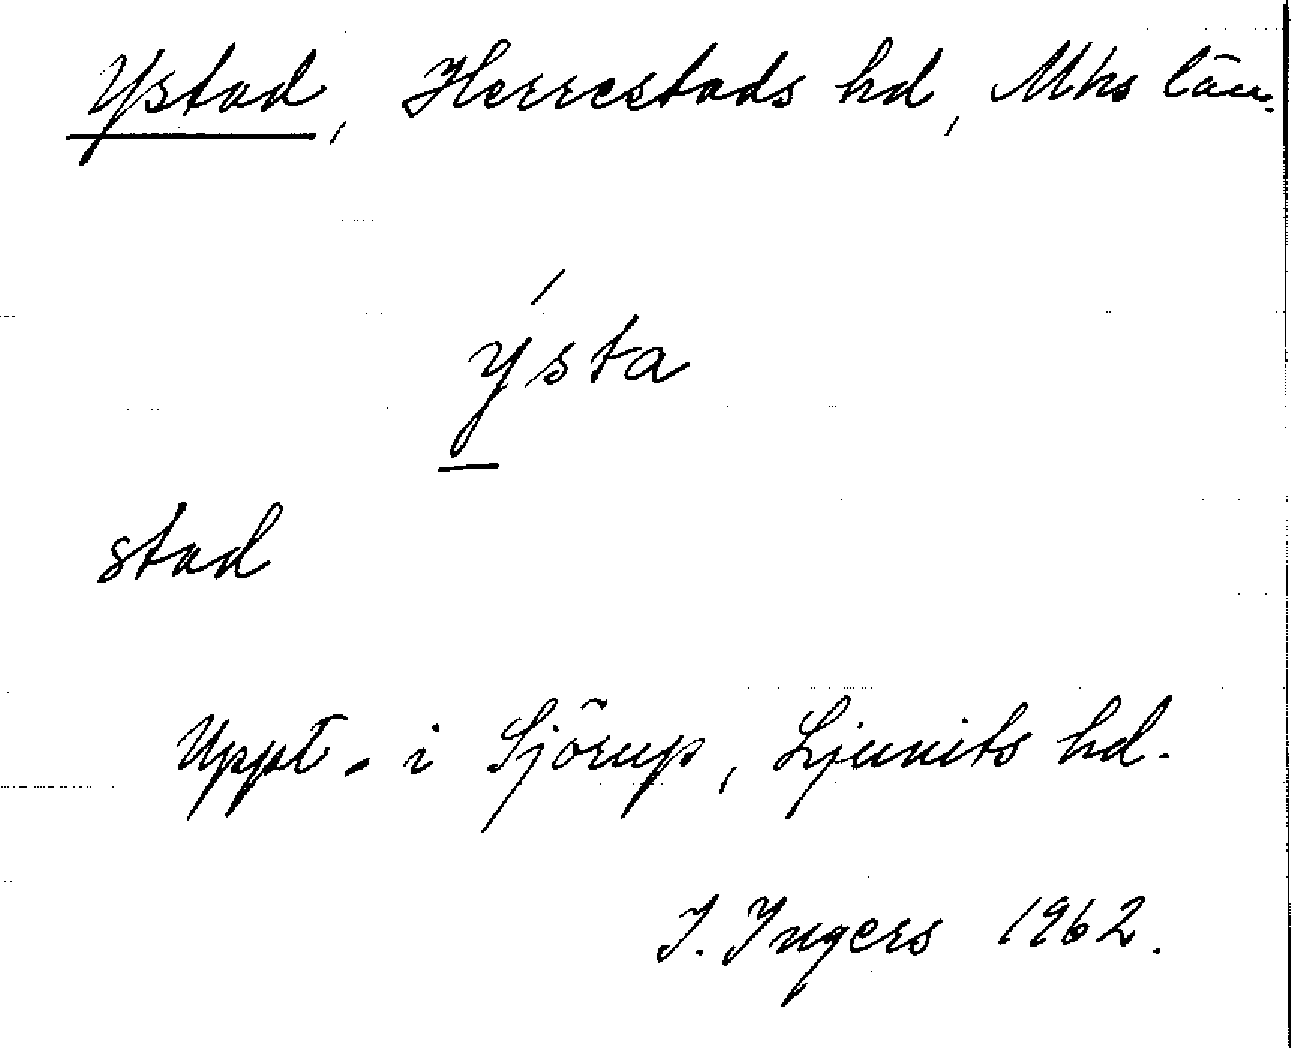 Ystad, Herrestads hd, Mhs län.
ýsta
stad
Uppt. i Sjörup, Ljunits hd.
I. Ingers 1962.